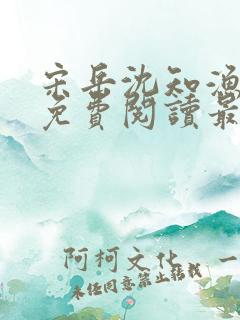 宋岳沈知渔
免費閱讀最
阿柯文化 一
未经同意禁止转载